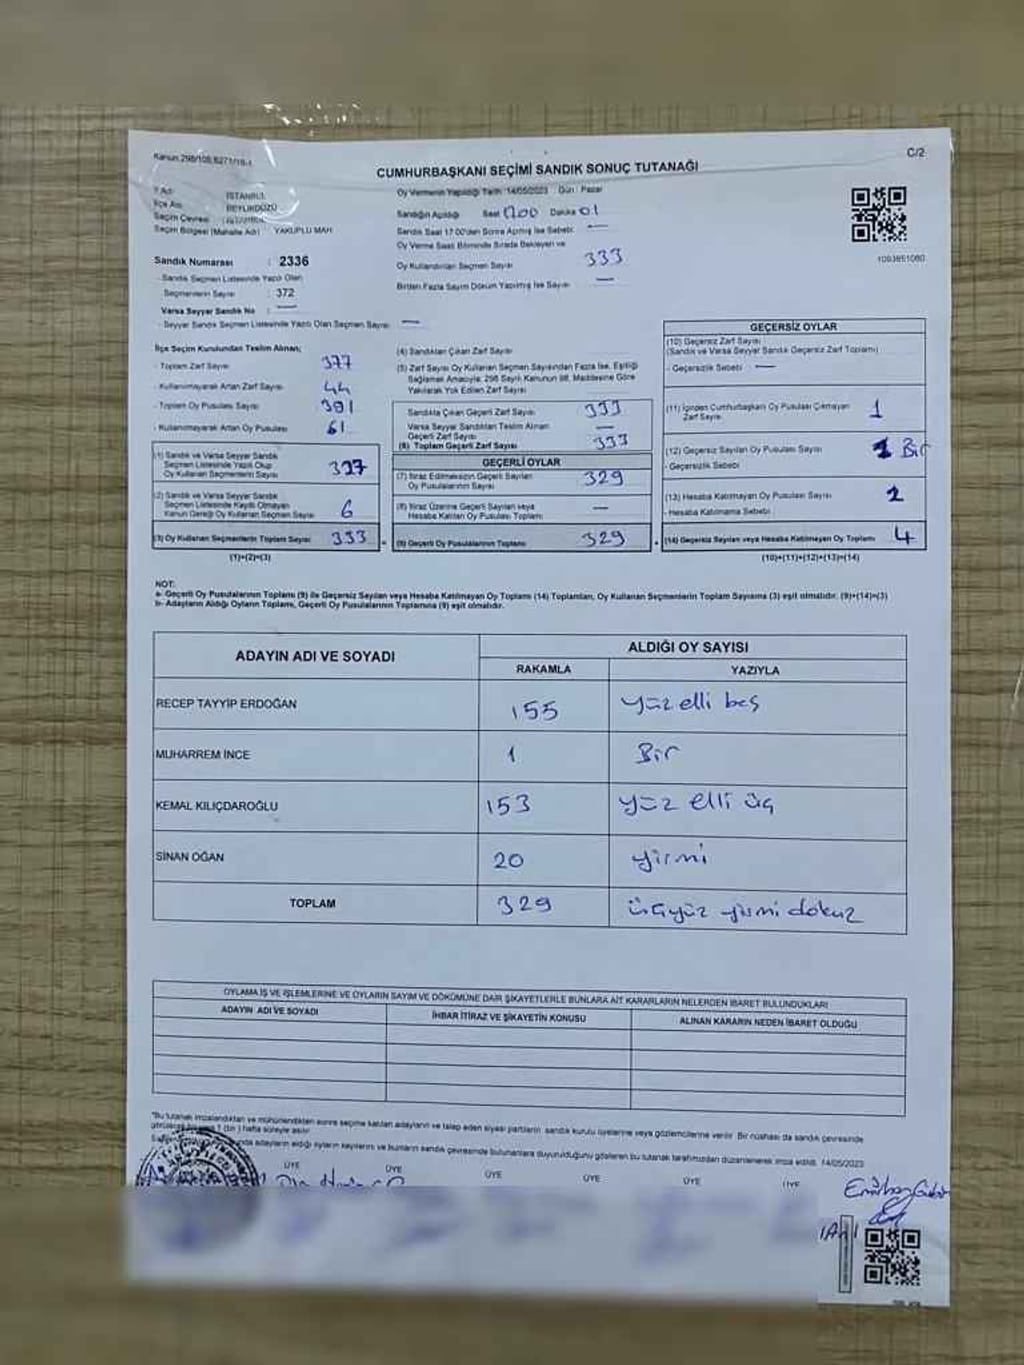 Kanun:298/105,6271/16-1
C/2
CUMHURBAŞKANI SEÇİMİ SANDIK SONUÇ TUTANAĞI
İl Adı İSTANBUL
İlçe Adı BEYLİKDÜZÜ
Seçim Çevresi İSTANBUL
Seçim Bölgesi (Mahalle Adı) YAKUPLU MAH.
Sandık Numarası : 2336
- Sandık Seçmen Listesinde Yazılı Olan
Seçmenlerin Sayısı : 372
Varsa Seyyar Sandık No : —
- Seyyar Sandık Seçmen Listesinde Yazılı Olan Seçmen Sayısı —
Oy Vermenin Yapıldığı Tarih: 14/05/2023 Gün: Pazar
Sandığın Açıldığı Saat 1700 Dakika 01
Sandık Saat 17:00'den Sonra Açılmış İse Sebebi: —
Oy Verme Saati Bitiminde Sırada Bekleyen ve
Oy Kullandırılan Seçmen Sayısı 333
Birden Fazla Sayım Döküm Yapılmış İse Sayısı —
1093851080
İlçe Seçim Kurulundan Teslim Alınan;
- Toplam Zarf Sayısı 377
- Kullanılmayarak Artan Zarf Sayısı 44
- Toplam Oy Pusulası Sayısı 391
- Kullanılmayarak Artan Oy Pusulası 61
(1) Sandık ve Varsa Seyyar Sandık
Seçmen Listesinde Yazılı Olup
Oy Kullanan Seçmenlerin Sayısı 327
(2) Sandık ve Varsa Seyyar Sandık
Seçmen Listesinde Kaydı Olmayan
Kanun Gereği Oy Kullanan Seçmen Sayısı 6
(3) Oy Kullanan Seçmenlerin Toplam Sayısı 333
(1)+(2)=(3)
(4) Sandıktan Çıkan Zarf Sayısı
(5) Zarf Sayısı Oy Kullanan Seçmen Sayısından Fazla İse, Eşitliği
Sağlamak Amacıyla; 298 Sayılı Kanunun 98. Maddesine Göre
Yakılarak Yok Edilen Zarf Sayısı
Sandıkta Çıkan Geçerli Zarf Sayısı 333
Varsa Seyyar Sandıktan Teslim Alınan
Geçerli Zarf Sayısı —
(6) Toplam Geçerli Zarf Sayısı 333
GEÇERLİ OYLAR
(7) İtiraz Edilmeksizin Geçerli Sayılan
Oy Pusulalarının Sayısı 329
(8) İtiraz Üzerine Geçerli Sayılan veya
Hesaba Katılan Oy Pusulası Toplamı —
(9) Geçerli Oy Pusulalarının Toplamı 329
GEÇERSİZ OYLAR
(10) Geçersiz Zarf Sayısı
(Sandık ve Varsa Seyyar Sandık Geçersiz Zarf Toplamı)
- Geçersizlik Sebebi —
(11) İçinden Cumhurbaşkanı Oy Pusulası Çıkmayan
Zarf Sayısı 1
(12) Geçersiz Sayılan Oy Pusulası Sayısı 1 Bir
- Geçersizlik Sebebi
(13) Hesaba Katılmayan Oy Pusulası Sayısı 2
- Hesaba Katılmama Sebebi
(14) Geçersiz Sayılan veya Hesaba Katılmayan Oy Toplamı 4
(10)+(11)+(12)+(13)=(14)
NOT:
a- Geçerli Oy Pusulalarının Toplamı (9) ile Geçersiz Sayılan veya Hesaba Katılmayan Oy Toplamı (14) Toplamları, Oy Kullanan Seçmenlerin Toplam Sayısına (3) eşit olmalıdır. (9)+(14)=(3)
b- Adayların Aldığı Oyların Toplamı, Geçerli Oy Pusulalarının Toplamına (9) eşit olmalıdır.
ADAYIN ADI VE SOYADI
ALDIĞI OY SAYISI
RAKAMLA YAZIYLA
RECEP TAYYİP ERDOĞAN 155 yüz elli beş
MUHARREM İNCE 1 Bir
KEMAL KILIÇDAROĞLU 153 yüz elli üç
SİNAN OĞAN 20 yirmi
TOPLAM 329 üçyüz yirmi dokuz
OYLAMA İŞ VE İŞLEMLERİNE VE OYLARIN SAYIM VE DÖKÜMÜNE DAİR ŞİKAYETLERLE BUNLARA AİT KARARLARIN NELERDEN İBARET BULUNDUKLARI
ADAYIN ADI VE SOYADI İHBAR İTİRAZ VE ŞİKAYETİN KONUSU ALINAN KARARIN NEDEN İBARET OLDUĞU
*Bu tutanak imzalandıktan ve mühürlendikten sonra seçime katılan adayların ve talep eden siyasi partilerin sandık kurulu üyelerine veya gözlemcilerine verilir. Bir nüshası da sandık çevresinde
1 (bir) hafta süreyle asılır.
adayların aldığı oyların sayılarını ve bunların sandık çevresinde bulunanlara duyurulduğunu gösteren bu tutanak tarafımızdan düzenlenerek imza edildi. 14/05/2023
ÜYE ÜYE ÜYE ÜYE ÜYE ÜYE